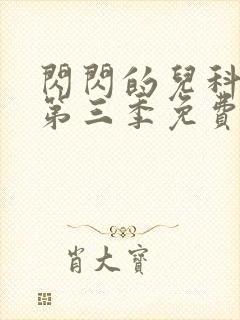 閃閃的兒科
第三季免費
肖大寶